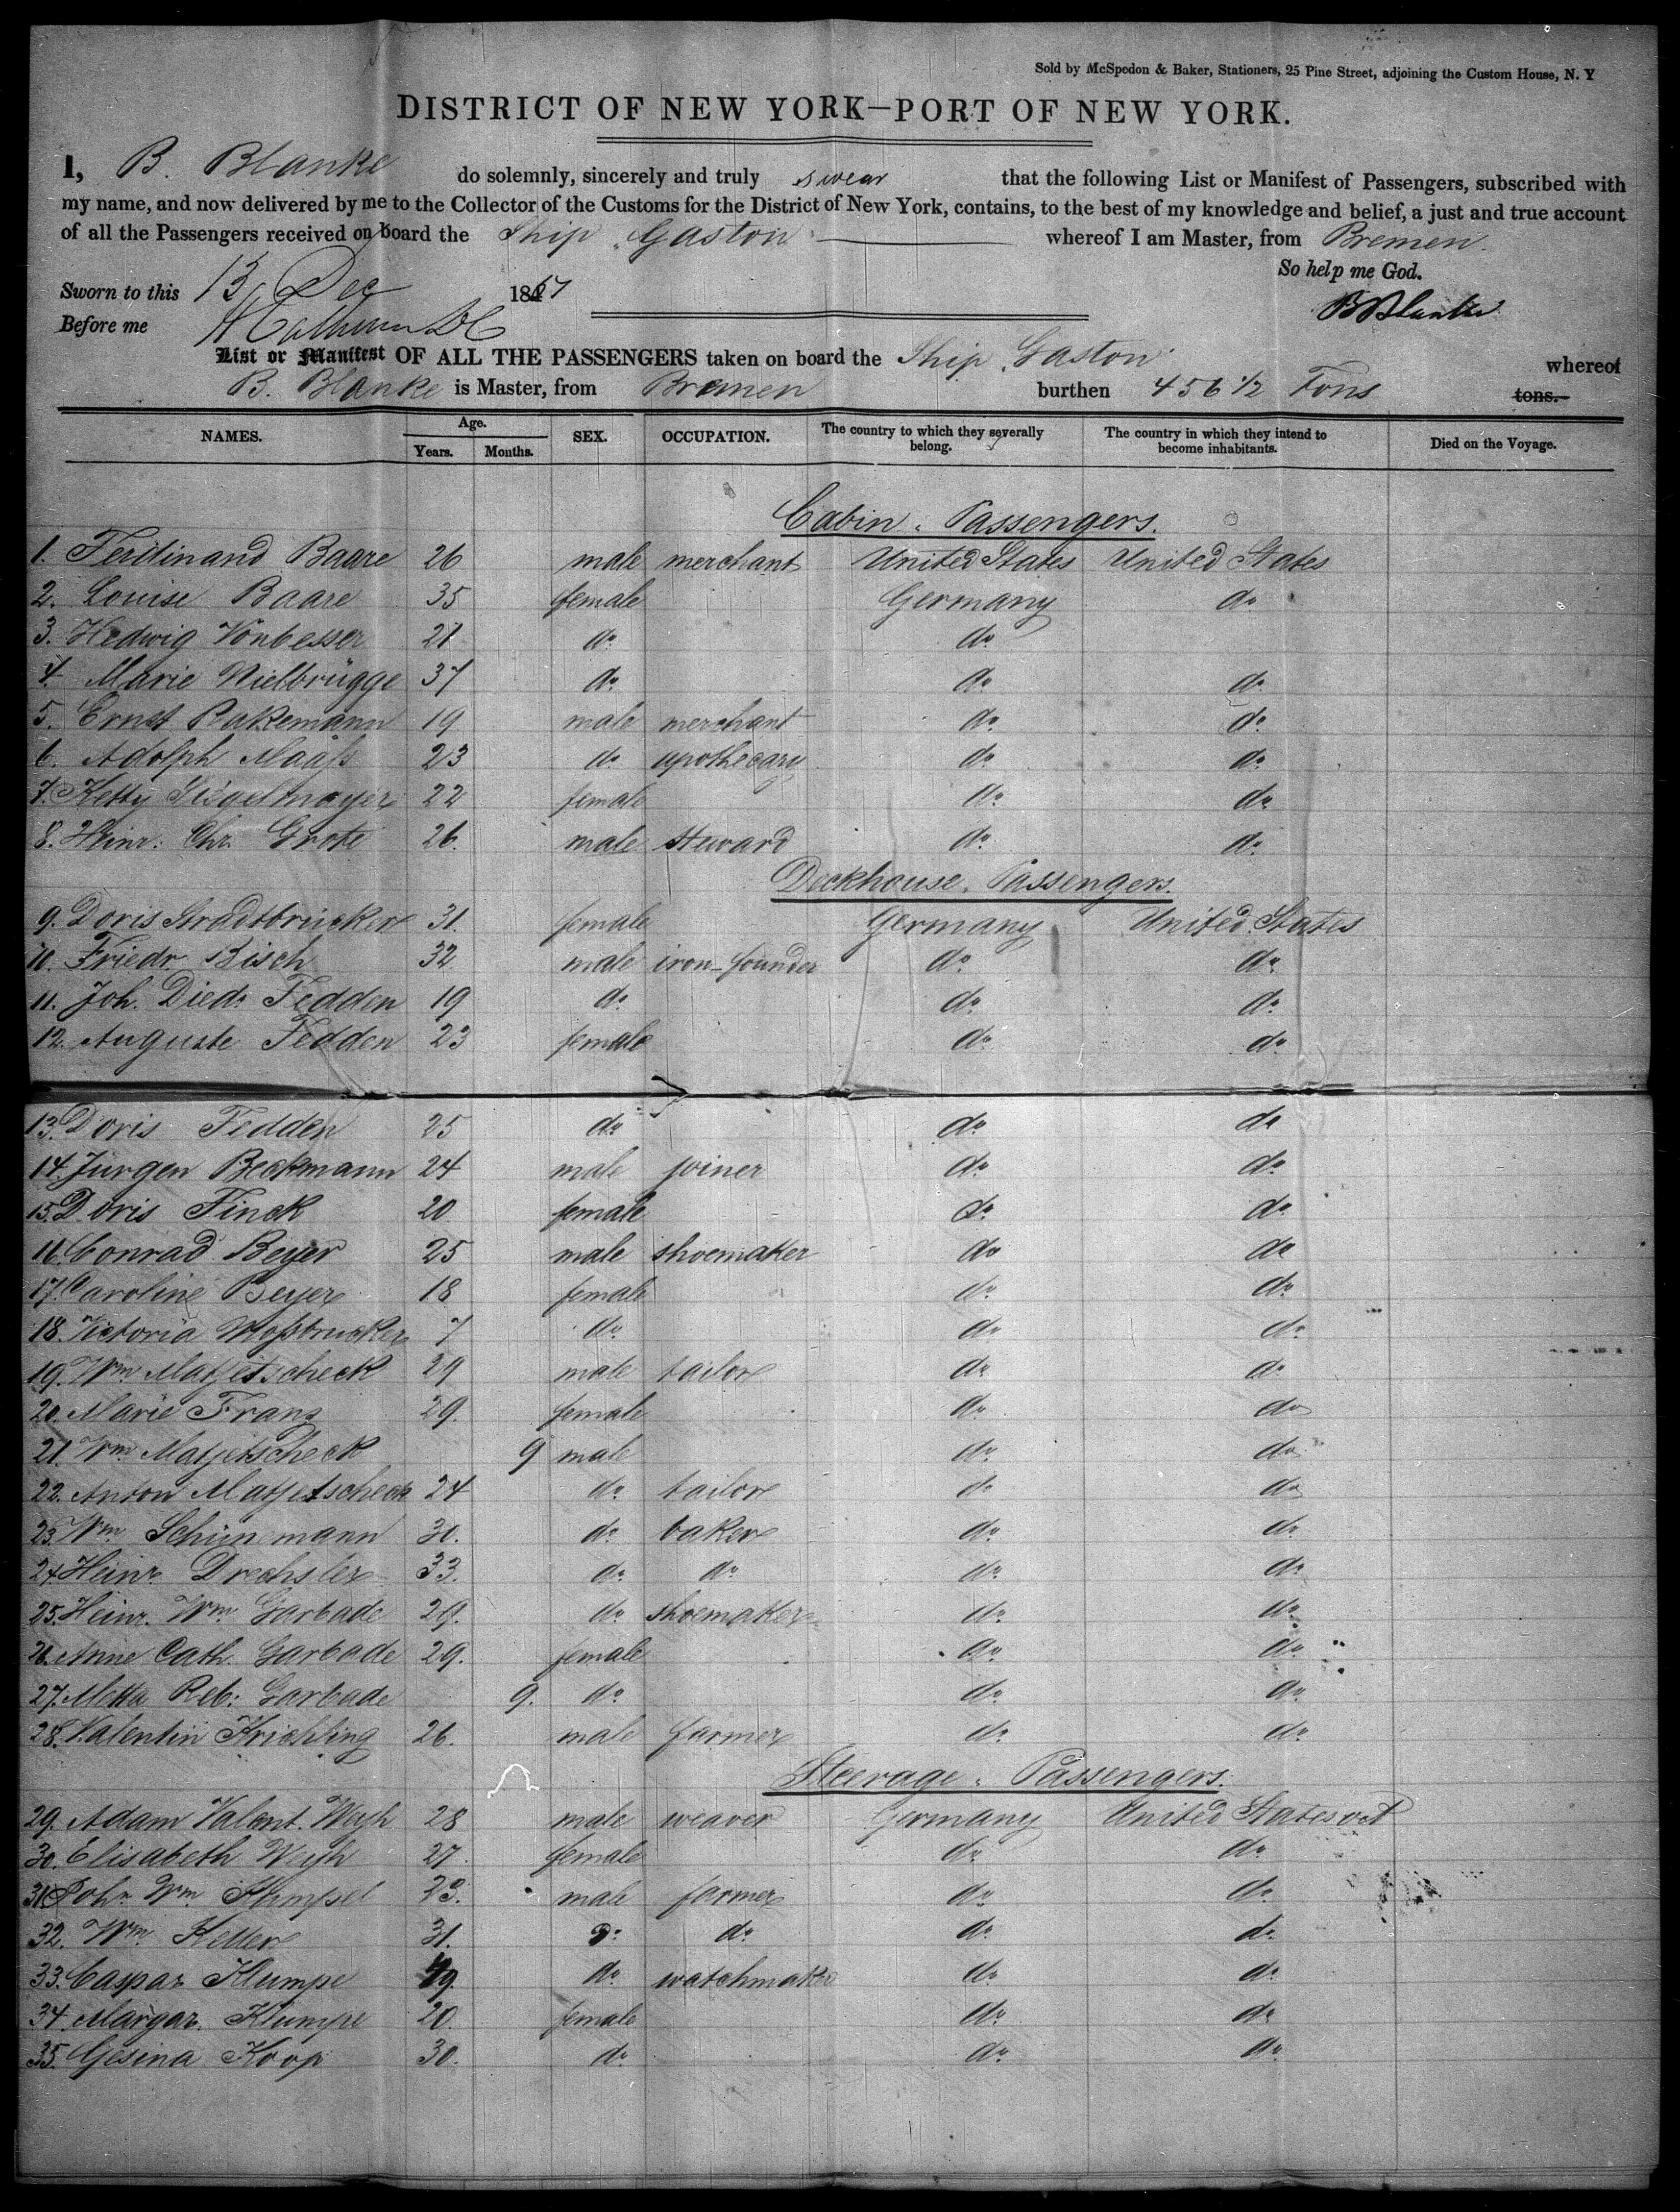 Sold by McSpedon & Baker, Stationers, 25 Pine Street, adjoining the Custom House, N. Y
DISTRICT OF NEW YORK—PORT OF NEW YORK.
I, B. Blanke do solemnly, sincerely and truly swear that the following List or Manifest of Passengers, subscribed with
my name, and now delivered by me to the Collector of the Customs for the District of New York, contains, to the best of my knowledge and belief, a just and true account
of all the Passengers received on board the Ship „Gaston" whereof I am Master, from Bremen.
So help me God.
Sworn to this 13, Dec 1857
BBlanke
Before me
List or Manifest OF ALL THE PASSENGERS taken on board the Ship „Gaston" whereof
B. Blanke is Master, from Bremen burthen 456 1/2 Tons tons.
NAMES. Age. Years. Months. SEX. OCCUPATION. The country to which they severally belong. The country in which they intend to become inhabitants. Died on the Voyage.
Cabin-Passengers.
1. Ferdinand Baare 26 male merchant United States United States
2. Louise Baare 35 female Germany do
3. Hedwig Vonbesser 21 do do
4. Marie Nielbrügge 37 do do do
5. Ernst Rakemann 19 male merchant do do
6. Adolph Maaſs 23 do apothecary do do
7. Ketty Siegelmayer 22 female do do
8. Heinr: Chr. Grote 26. male steward do do
Deckhouse-Passengers.
9. Doris Stradtbrucker 31. female Germany United States
10. Friedr. Bisch 32 male iron-founder do do
11. Joh. Died: Fedden 19 do do do
12. Auguste Fedden 23 female do do
13. Doris Fedden 25 do do do
14. Jürgen Beckmann 24 male joiner do do
15. Doris Finck 20 female do do
16. Conrad Beyer 25 male shoemaker do do
17. Caroline Beyer 18 female do do
18. Victoria Moſsbrucker 7 do do do
19. Wm. Matjetscheck 29 male tailor do do
20. Marie Franz 29. female do do
21. Wm. Matjetscheck 9 male do do
22. Anton Matjetscheck 24 do tailor do do
23. Wm. Schünemann 30. do baker do do
24. Heinr. Drechsler 33. do do do do
25. Heinr. Wm. Garbade 29. do shoemaker do do
26. Anne Cath. Garbade 29. female do do
27. Metta Reb: Garbade 9. do do do
28. Valentin Krichling 26. male farmer do do
Steerage-Passengers.
29. Adam Valent. Weyh 28 male weaver Germany United States
30. Elisabeth Weyh 27. female do do
31. Joh. Wm. Stumpel 23. male farmer do do
32. Wm. Keller 31. do do do do
33. Caspar Klumpe do watchmaker do do
34. Margar. Klumpe 20. female do do
35. Gesina Koop 30. do do do